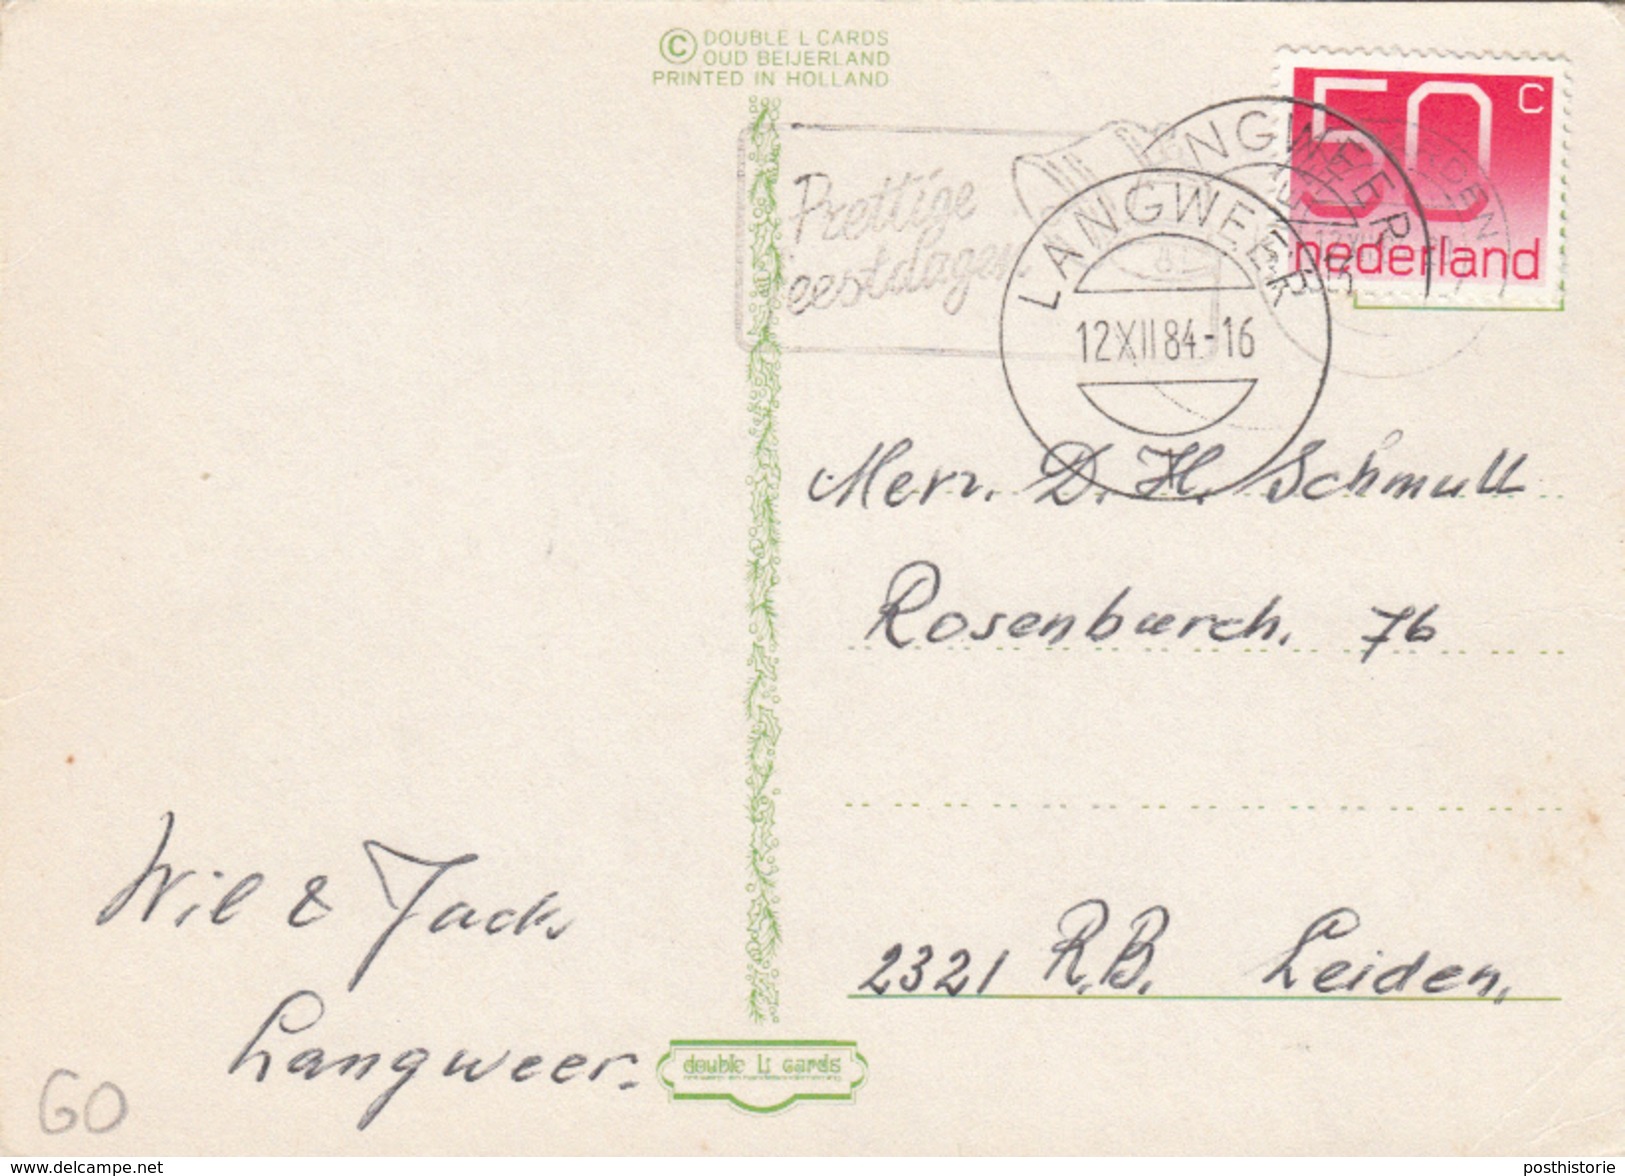 © DOUBLE L CARDS
OUD BEIJERLAND
PRINTED IN HOLLAND
50 C
nederland
Prettige
feestdagen
LANGWEER
LANGWEER
12 XII 84.-16
D. H. Schmull
76
2321 R.B. Leiden.
Wil & Jack,
Langweer.
double L cards
60
www.delcampe.net
posthistorie